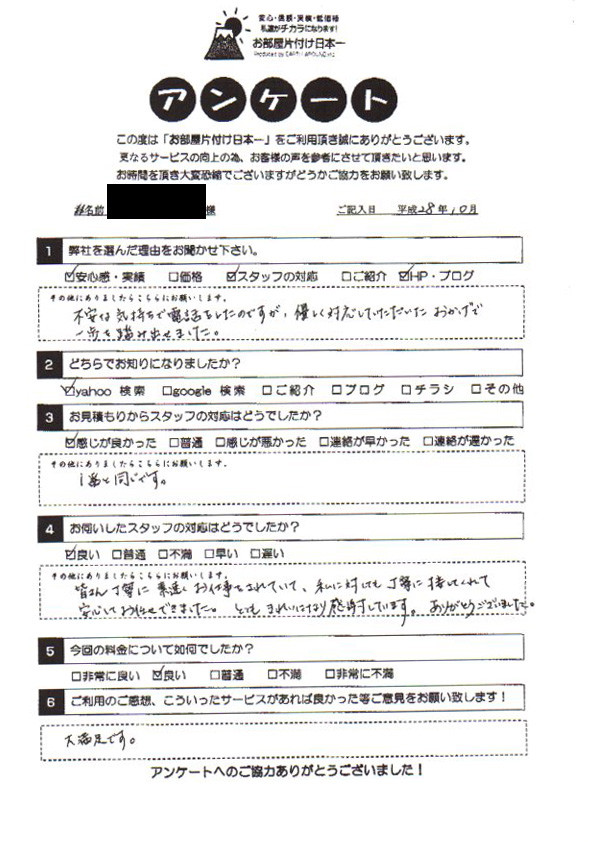 安心・信頼・実績・低価格
私達がチカラになります!
お部屋片付け日本一
Produced by EARTH AROUND.inc
アンケート
この度は「お部屋片付け日本一」をご利用頂き誠にありがとうございます。
更なるサービスの向上の為、お客様の声を参考にさせて頂きたいと思います。
お時間を頂き大変恐縮でございますがどうかご協力をお願い致します。
お名前 様 ご記入日 平成28年10月
1 弊社を選んだ理由をお聞かせ下さい。
☑安心感・実績 □価格 ☑スタッフの対応 □ご紹介 ☑HP・ブログ
その他にありましたらこちらにお願いします。
不安な気持ちで電話をしたのですが、優しく対応していただいたおかげで
一歩を踏み出せました。
2 どちらでお知りになりましたか?
☑yahoo 検索 □google 検索 □ご紹介 □ブログ □チラシ □その他
3 お見積もりからスタッフの対応はどうでしたか?
☑感じが良かった □普通 □感じが悪かった □連絡が早かった □連絡が遅かった
その他にありましたらこちらにお願いします。
1番と同じです。
4 お伺いしたスタッフの対応はどうでしたか?
☑良い □普通 □不満 □早い □遅い
その他にありましたらこちらにお願いします。
皆さん丁寧に素速くお仕事をされていて、私に対しても丁寧に接してくれて
安心してお任せできました。とてもきれいになり感謝しています。ありがとうございました。
5 今回の料金について如何でしたか?
□非常に良い ☑良い □普通 □不満 □非常に不満
6 ご利用のご感想、こういったサービスがあれば良かった等ご意見をお願い致します!
大満足です。
アンケートへのご協力ありがとうございました!